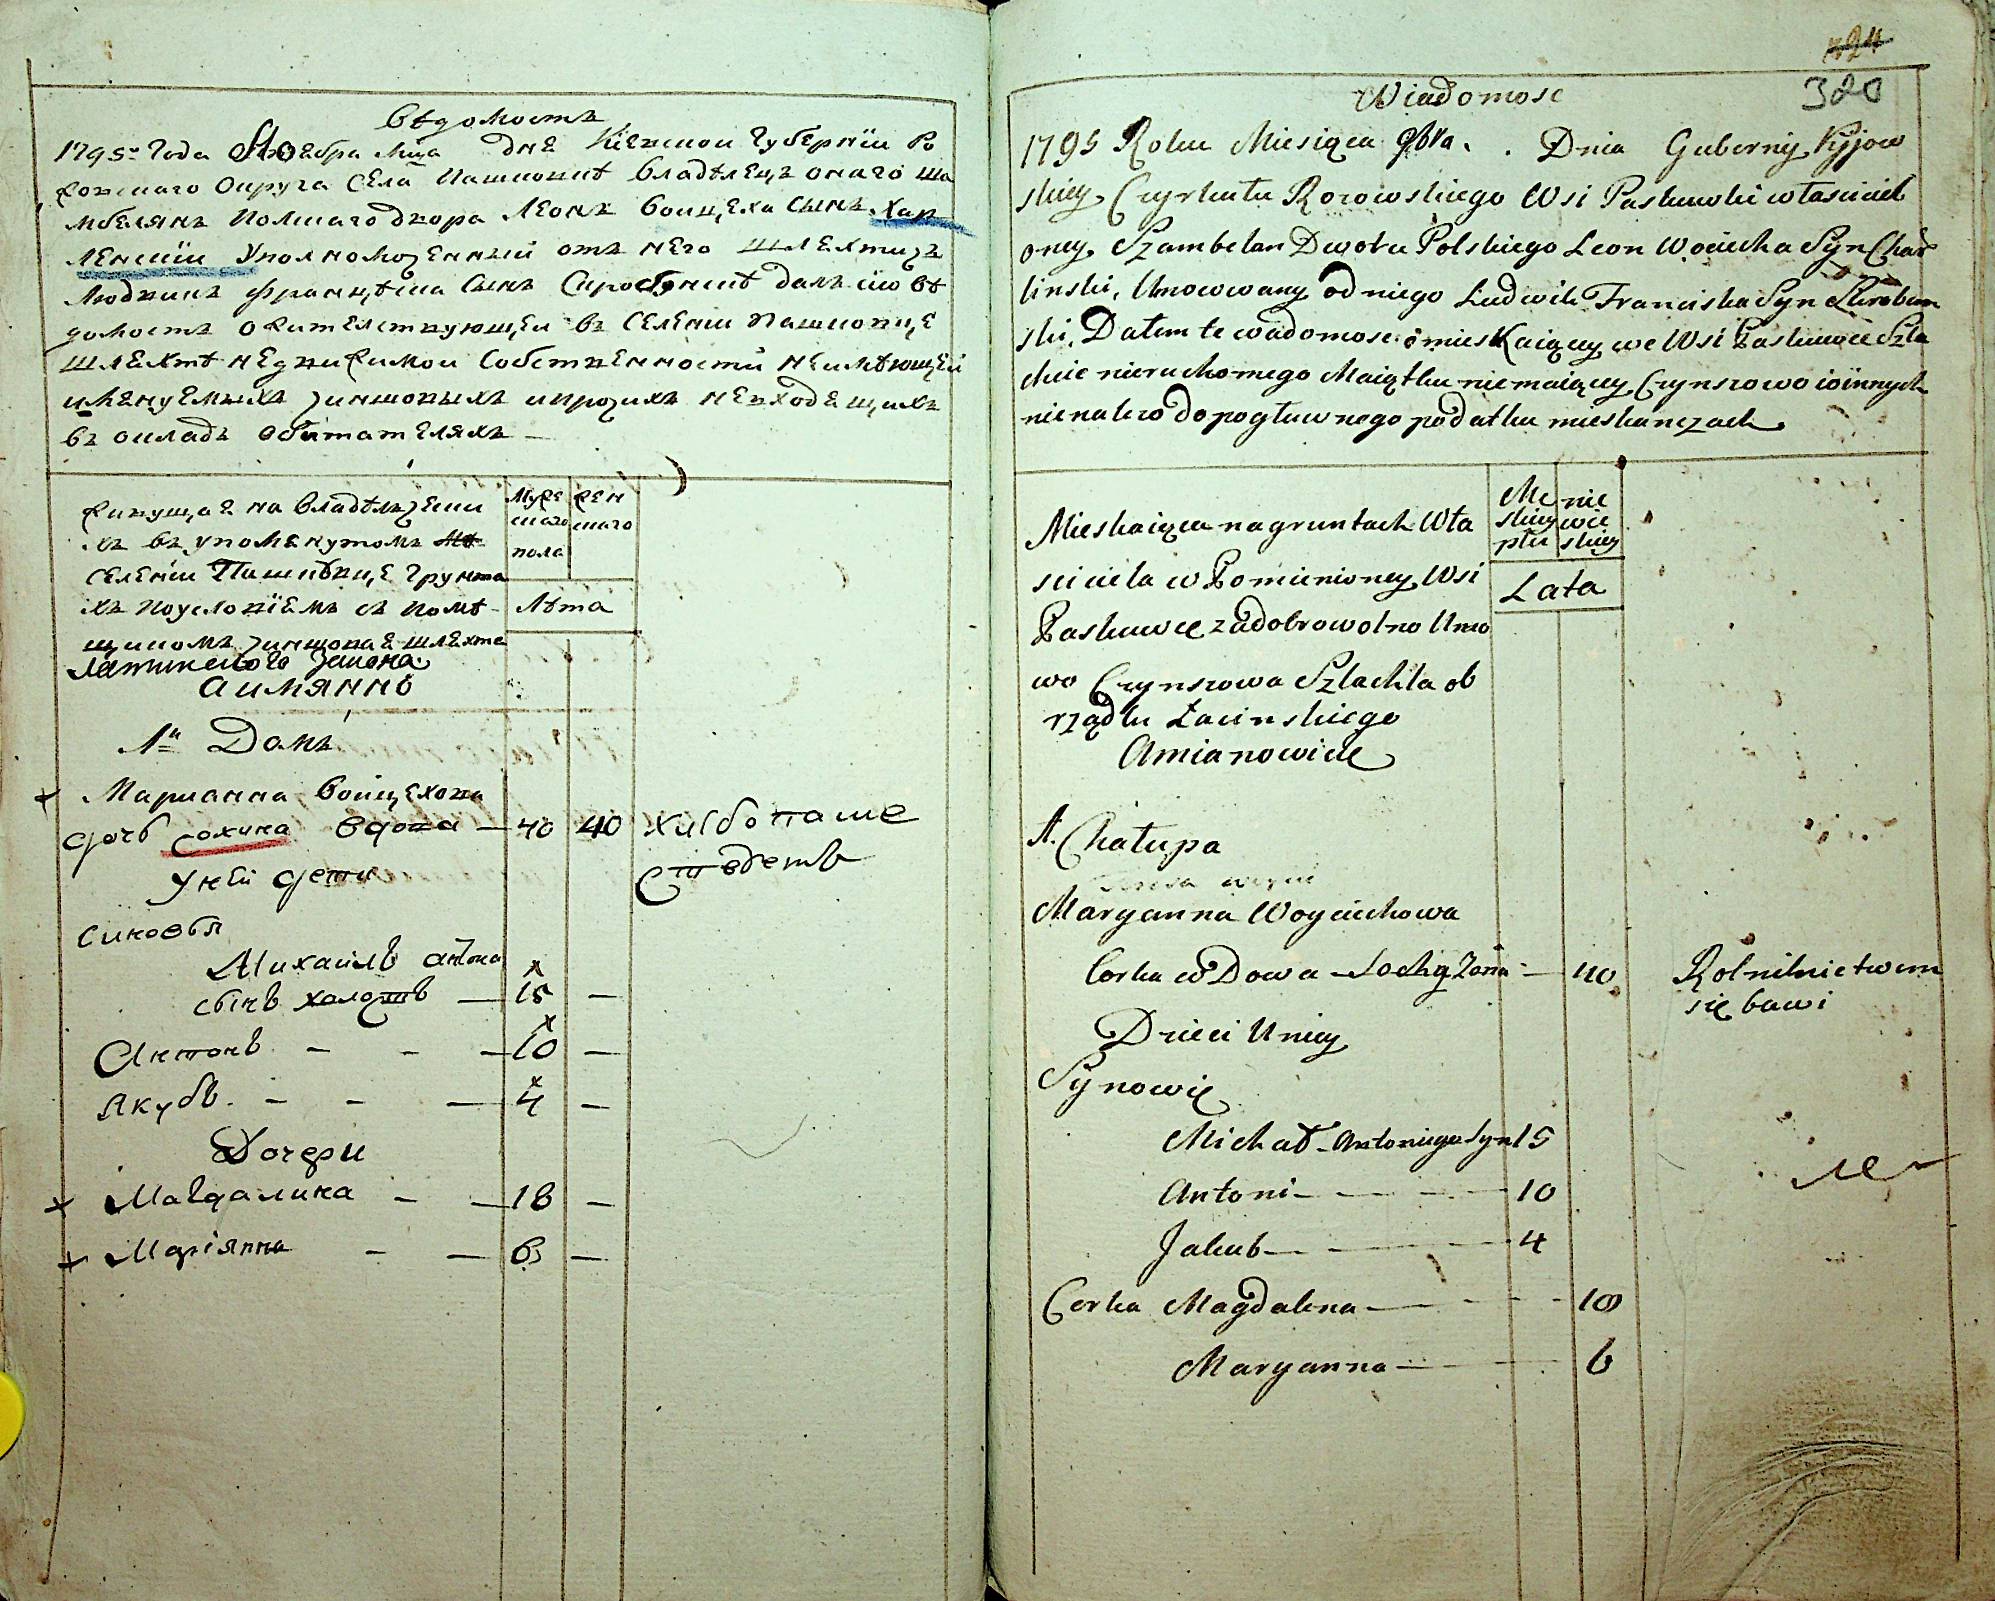 Вѣдомость
1795го Года Ноебра Мца дня Кіевскои Губернїи Ро
жовскаго Округа Села Пашковкѣ владѣлецъ онаго ша
мбелянъ Полскаго двора Леонъ Воицеха Сынъ Хар
ленскїи Уполномоченный отъ него шляхтичъ
Людвикъ Францѣшка Сынъ далъ сїю вѣ
домость о жителствующеи въ Селенїи Пашковце
шляхтѣ недвижимои Собственности неимѣющеи
имянуемыхъ чиншовыхъ ипрочихъ невходящихъ
въ окладъ обитателяхъ
живущая на владѣлчески
хъ въ упомянутомъ
Селенїи Пашковце Грунта
хъ поусловїемъ съ помѣ-
щикомъ чиншовая шляхта
Латинского Закона
аимянно
Муже
скаго
пола
жен
скаго
Лѣта
1й Домъ
Марианна Воицехова
дочь сохина вдова — 40 40 хлебопаше
ством
Уней дети
синовья
Михаилъ антона
сынъ холостъ — 15 —
Антонъ - - — 10 —
Якубъ - - — 4 —
Дочери
Магдалина - — 18 —
Маріянна - — 6 —
324
320
Wiadomosc
1795 Roku Miesiąca 9bra. Dnia Guberny Kyjow
skiey Cyrkułu Rozowskiego Wsi Paskuwki własciciel
oney Szambelan Dworu Polskiego Leon Wociecha Syn Char
linski, Umocowany od niego Ludwik Franciska Syn
ski, Dałem te wadomosc o mieskaiący we Wsi Paskuwce Szla
chcie nieruchomego Maiątku niemaiący Czynszowo i oinnych
nienalezo do pogłuwnego podatku mieskanczach
Mieskaiąca na gruntach Wła
sciciela w Pomienioney Wsi
Paskuwce zadobrowolno Umo
wo Czynszowa Szlachta ob
rządku Łacinskiego
Amianowicie
Me
skiey
płci
nie
wie
skiey
Lata
1. Chałupa
Maryanna Woyciechowa
Corka wDowa - Sochy Zona — 40 Rolnilnictwem
się bawi
Dzieci Uniey
Synowie
Michał - Antoniego Syn 15
Antoni - - - 10
Jakub - - 4
Corka Magdalena - - - 18
Maryanna - - 6